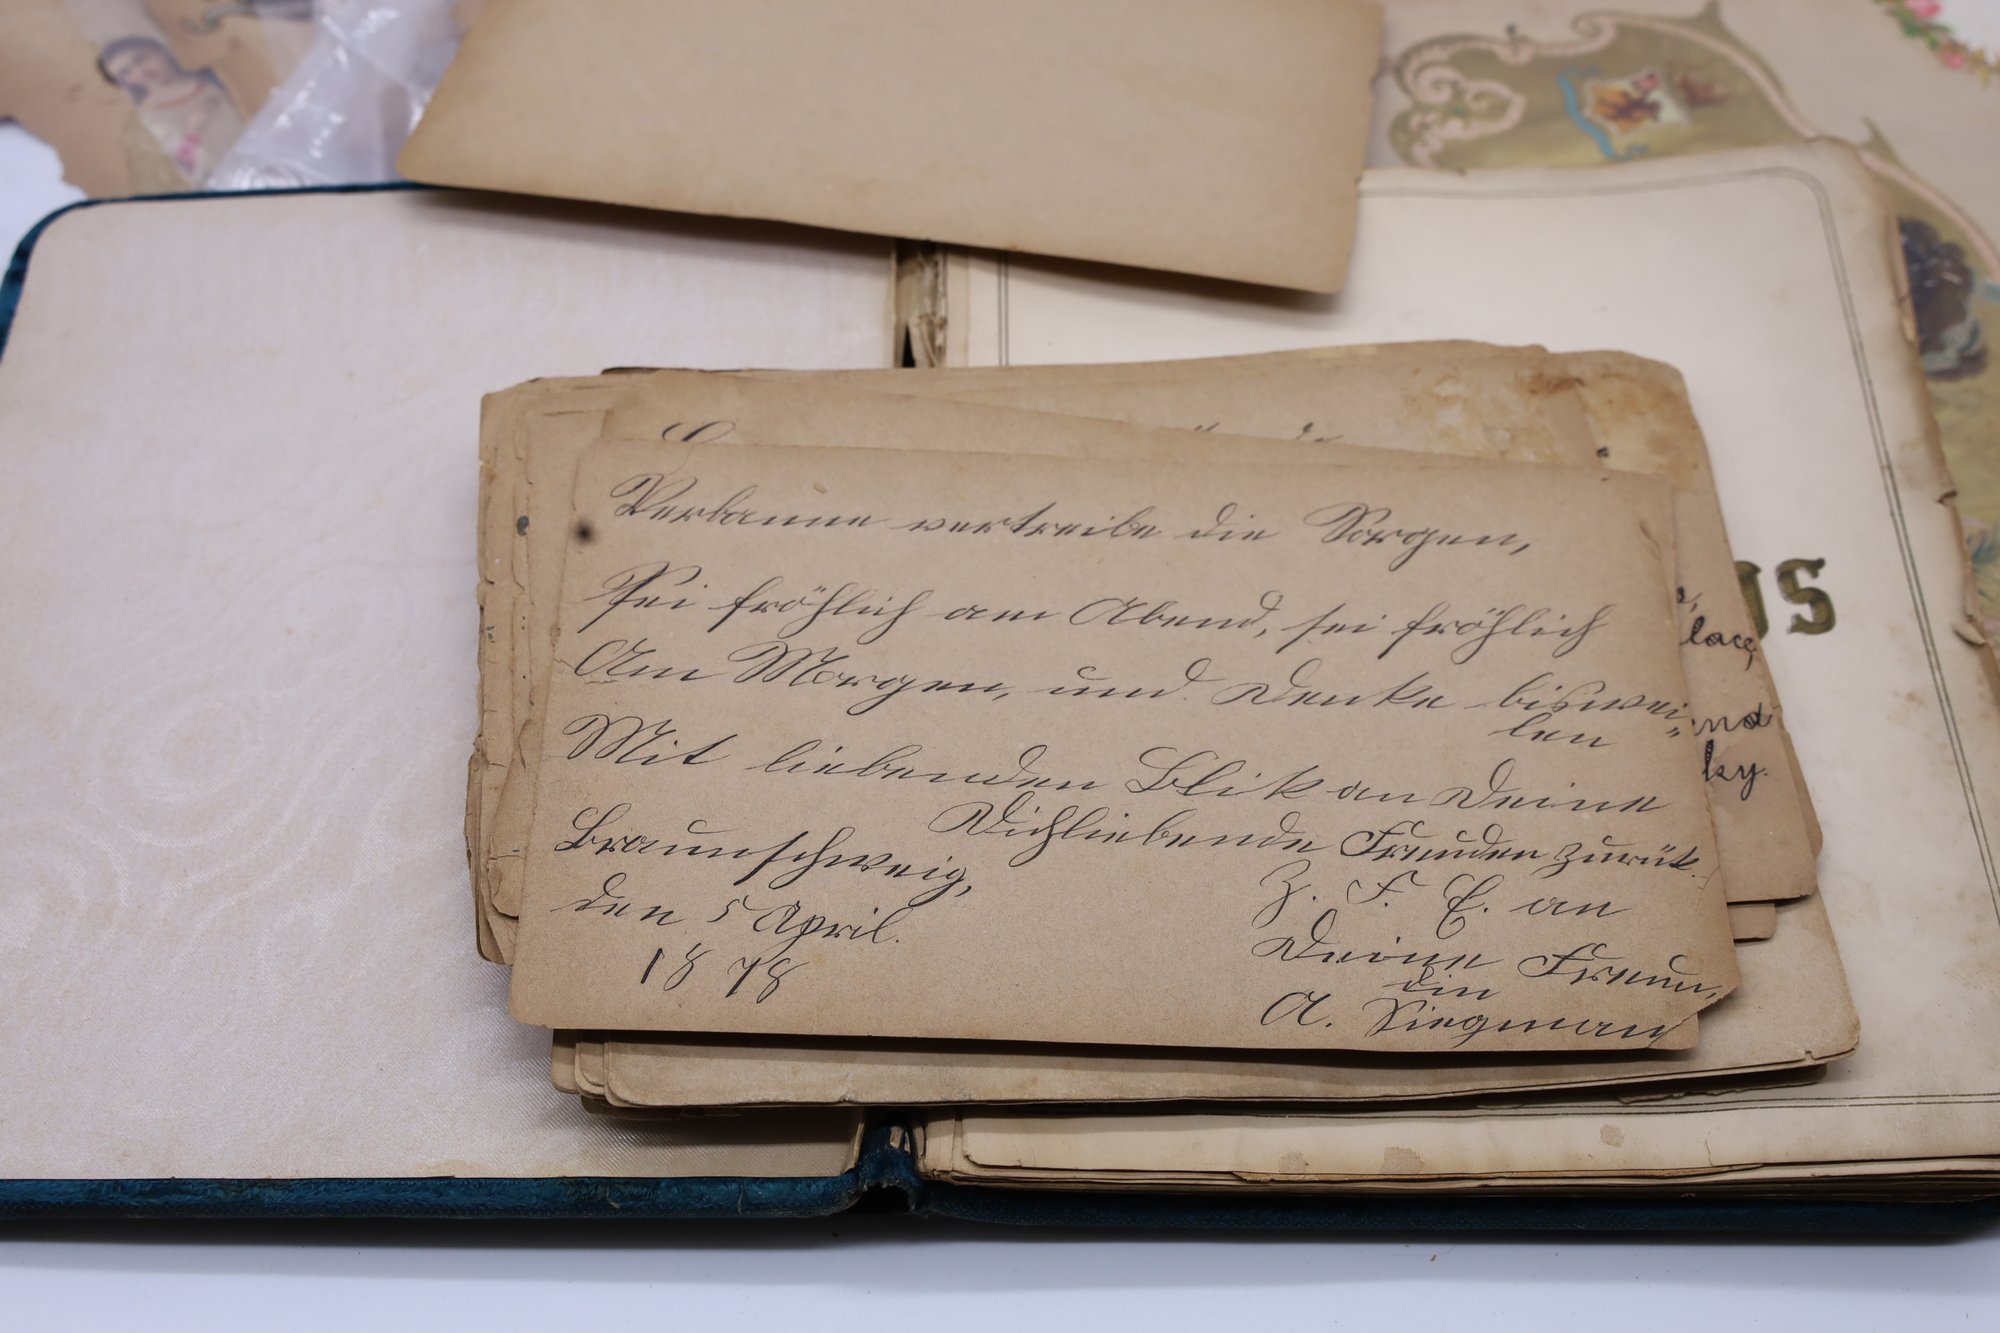 Verbanne vertreibe die Sorgen,
Sei fröhlich am Abend, sei fröhlich
Am Morgen, und Denke biswei-
len
Mit liebenden Blik an Deine
Dichliebende Freuden zurük.
Braunschweig,
den 5 April.
1878
Z. F. E. an
Deine Freun,
din
A. Siegman
lace,
end
ky.
OS